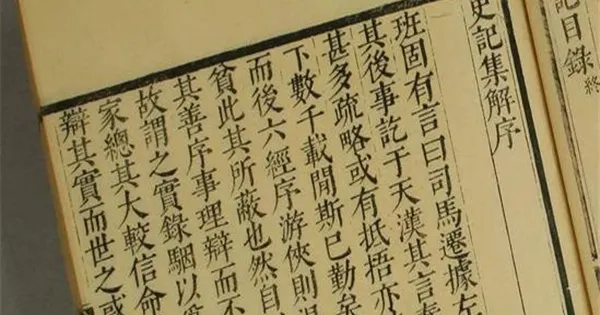 記目錄終
史記集解序
班固有言曰司馬遷據左
其後事訖于天漢其言秦
甚多疏略或有抵捂亦
下數千載閒斯已勤矣
而後六經序游俠則退
貧此其所蔽也然自
其善序事理辯而不
故謂之實錄駰以爲
家總其大較信命
辯其實而世之惑